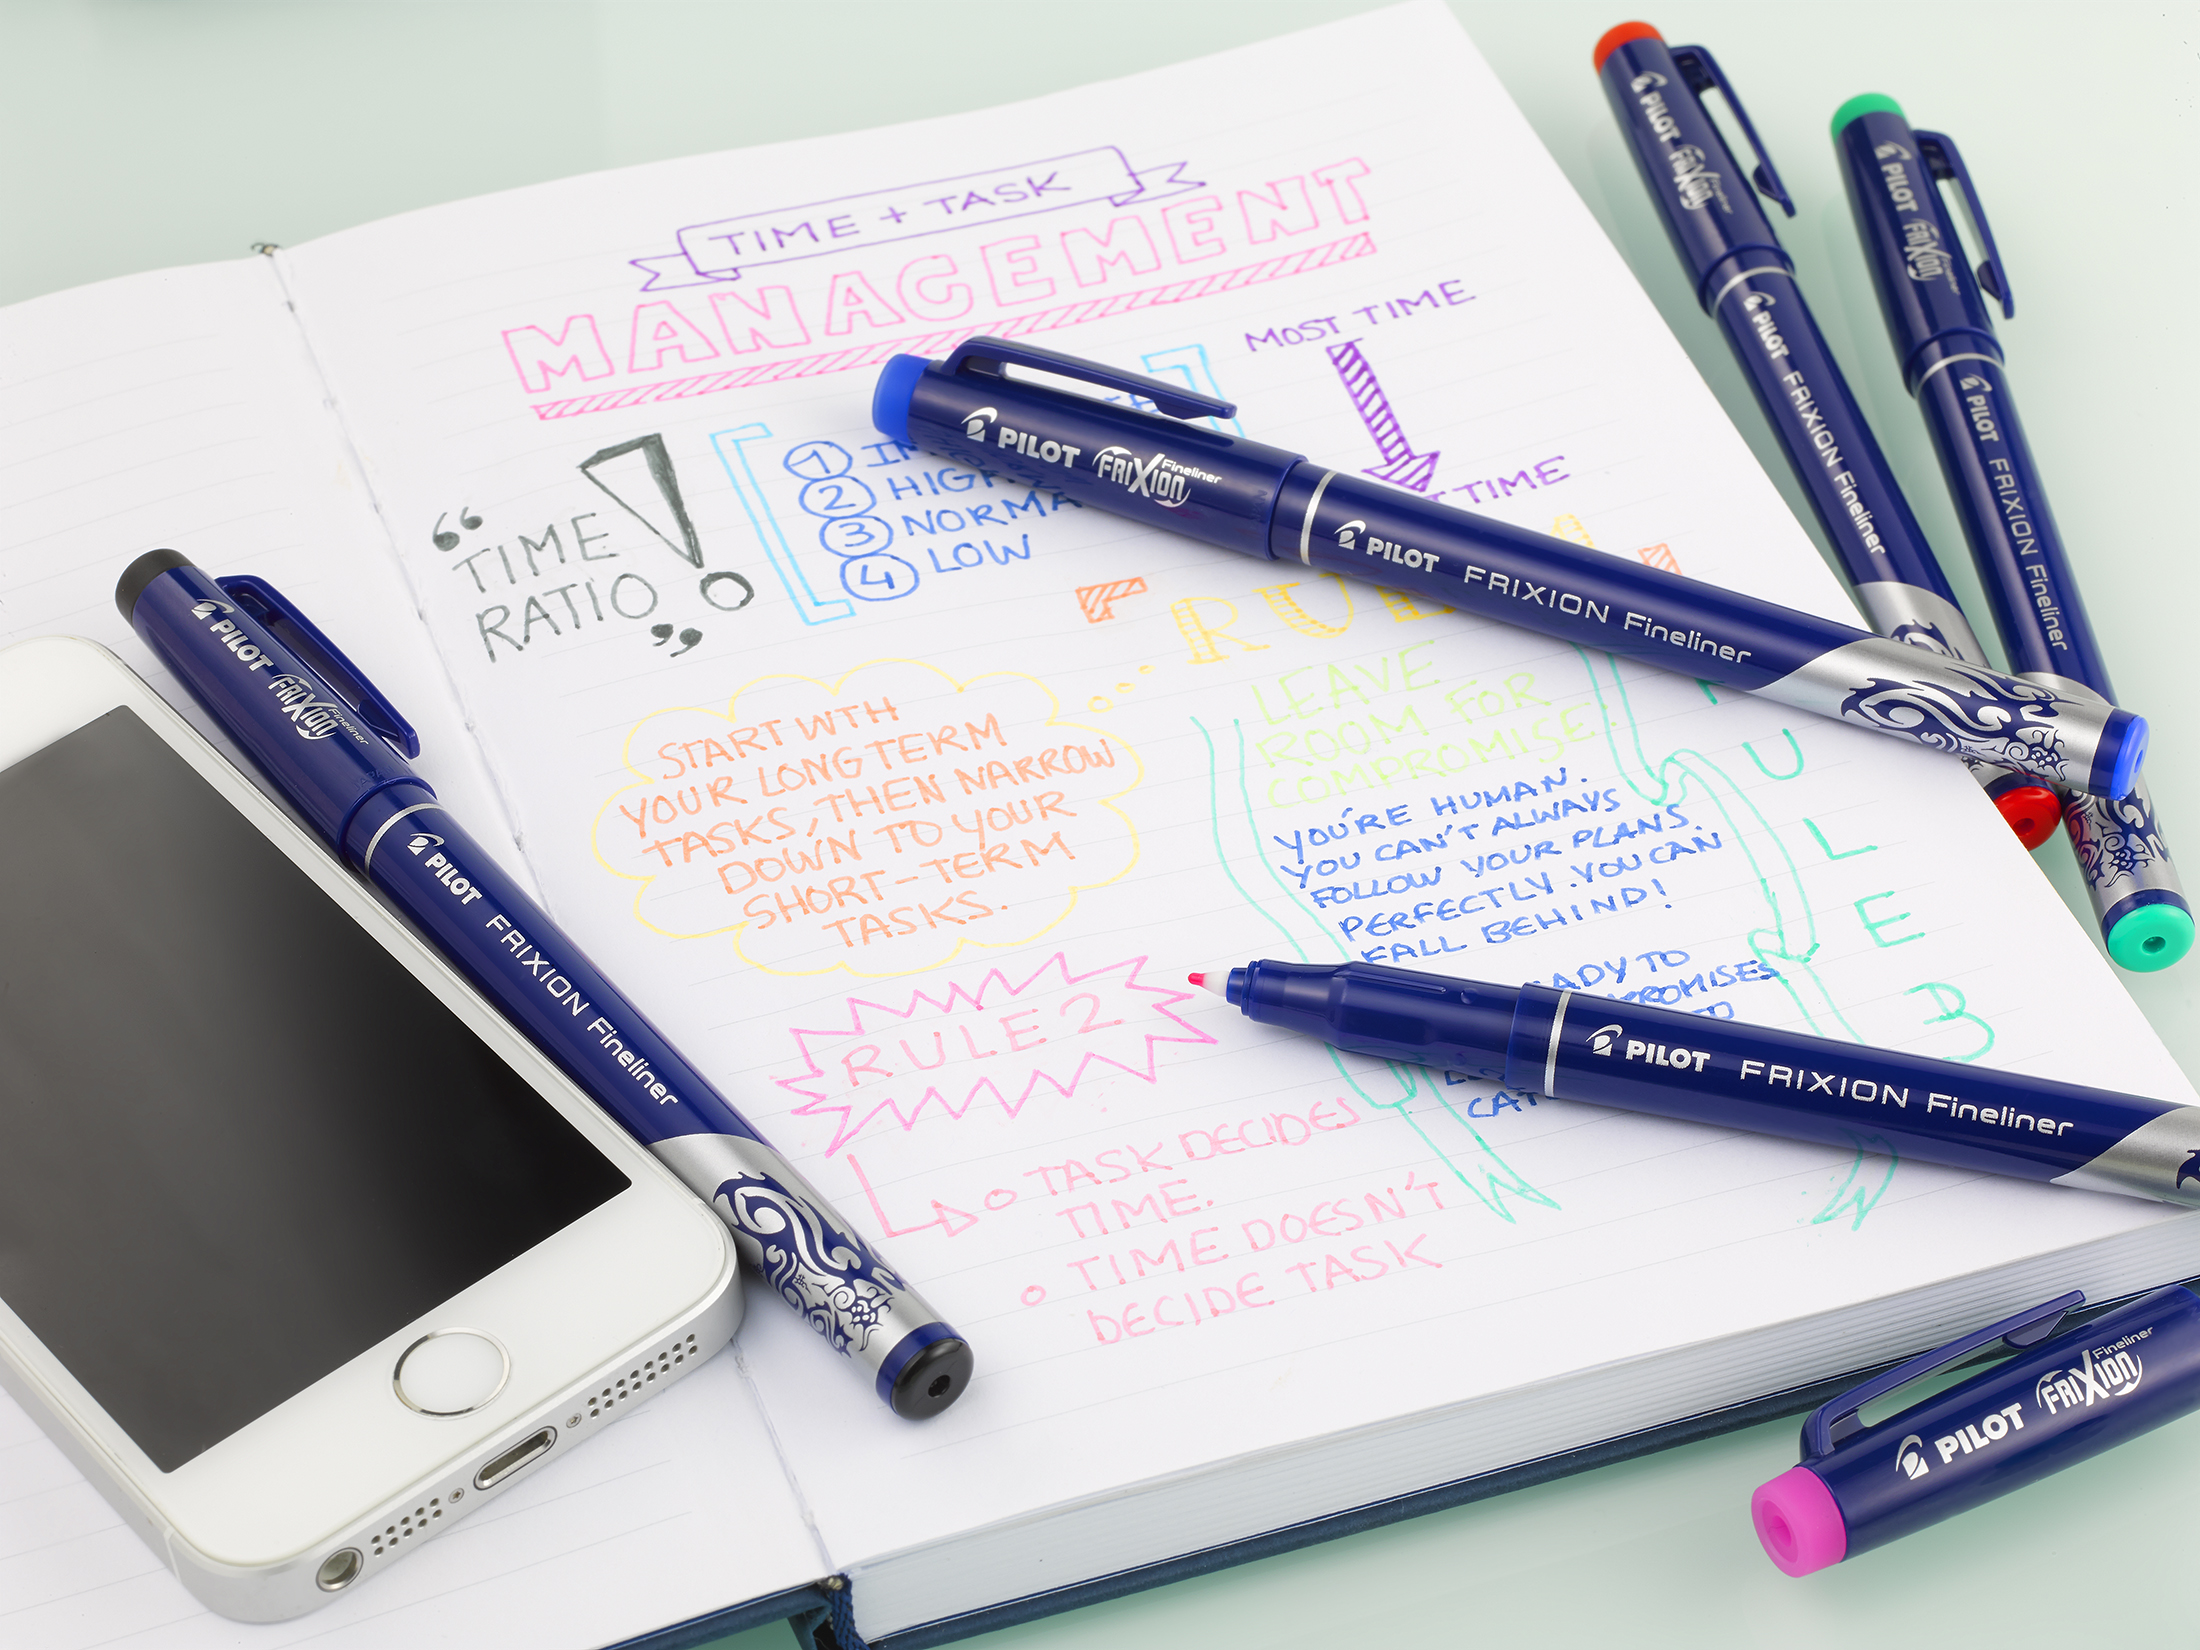 TIME + TASK
MANAGEMENT
“TIME
RATIO”
!
1
2 HIGH
3 NORMA
4 LOW
MOST TIME
TIME
RULE 1
START WTH
YOUR LONG TERM
TASKS, THEN NARROW
DOWN TO YOUR
SHORT-TERM
TASKS.
RULE 2
TASK DECIDES
TIME.
TIME DOESN'T
DECIDE TASK
LEAVE
ROOM FOR
COMPROMISE!
YOU'RE HUMAN.
YOU CAN'T ALWAYS
FOLLOW YOUR PLANS
PERFECTLY. YOU CAN
FALL BEHIND!
ADY TO
PROMISES
TO
CAT
R
U
L
E
3
PILOT FRIXION Fineliner
PILOT FRIXION Fineliner
PILOT FRIXION Fineliner
PILOT FRIXION Fineliner
PILOT FRIXION Fineliner
PILOT FRIXION Fineliner
PILOT FRIXION Fineliner
PILOT FRIXION Fineliner
PILOT FRIXION Fineliner
PILOT FRIXION Fineliner